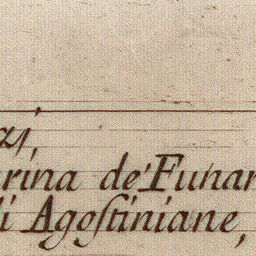 rina de' Funar
li Agostiniane,